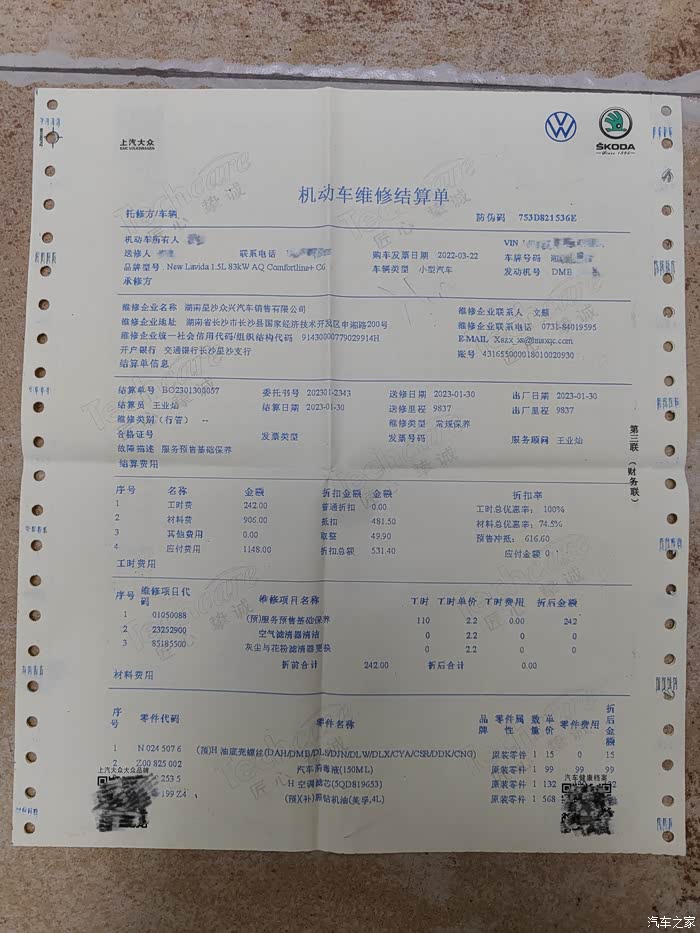 上汽大众
SAIC VOLKSWAGEN
ŠKODA
机动车维修结算单
托修方/车辆
防伪码 753D821536E
机动车所有人
VIN
送修人 联系电话 购车发票日期 2022-03-22 车牌号码
品牌型号 New Lavida 1.5L 83kW AQ Comfortline+ C6 车辆类型 小型汽车 发动机号 DMB
承修方
维修企业名称 湖南星沙众兴汽车销售有限公司 维修企业联系人
维修企业地址 湖南省长沙市长沙县国家经济技术开发区申湘路200号 维修企业联系电话 0731-84019595
维修企业统一社会信用代码/组织结构代码 9143000779029914H E-MAIL
开户银行 交通银行长沙星沙支行 账号 431655000018010020930
结算单信息
结算单号 BO2301300057 委托书号 202301-2343 送修日期 2023-01-30 出厂日期 2023-01-30
结算员 王业灿 结算日期 2023-01-30 送修里程 9837 出厂里程 9837
维修类别(行管) -- 维修类型 常规保养
合格证号 发票类型 发票号码 服务顾问 王业灿
故障描述 服务预售基础保养
第三联(财务联)
结算费用
序号 名称 金额 折扣金额 金额 折扣率
1 工时费 242.00 普通折扣 0.00 工时总优惠率: 100%
2 材料费 906.00 抵扣 481.50 材料总优惠率: 74.5%
3 其他费用 0.00 取整 49.90 预售冲抵: 616.60
4 应付费用 1148.00 折扣总额 531.40 应付金额 0
工时费用
序号 维修项目代码 维修项目名称 工时 工时单价 工时费用 折后金额
1 01050088 (预)服务预售基础保养 110 2.2 0.00 242
2 23252900 空气滤清器清洁 0 2.2 0
3 85185500 灰尘与花粉滤清器更换 0 2.2 0
折前合计 242.00 折后合计 0.00
材料费用
序号 零件代码 零件名称 品牌 零件属性 数量 单价 零件费用 折后金额
1 N 024 507 6 (预)H 油底壳螺丝(DAH/DMB/DLS/DJN/DLW/DLX/CYA/CSR/DDK/CNG) 原装零件 1 15 0 15
2 Z00 825 002 汽车消毒液(150ML) 原装零件 1 99 99 99
253 5 H 空调滤芯(5QD819653) 原装零件 1 132
199 Z4 (预)(补)新钻机油(美孚,4L) 原装零件 1 568
上汽大众大众品牌
汽车健康档案
Techcare
匠心挚诚
汽车之家